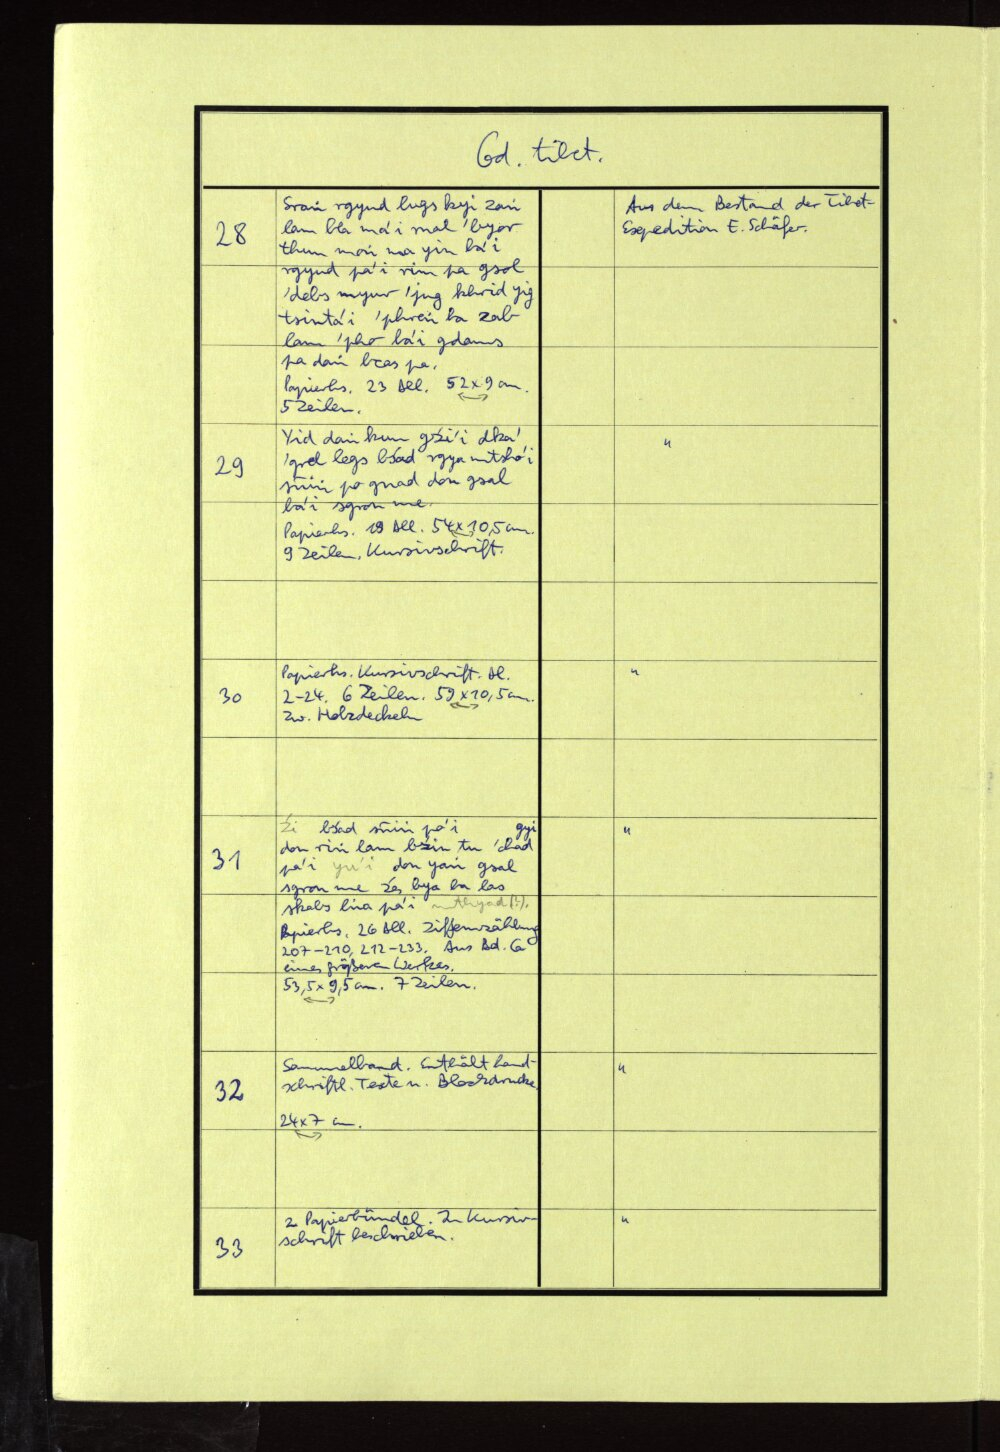 Cod. tibet.
28
Sñan rgyud lugs kyi zaṅ
lam bla ma'i rnal 'byor
thun moṅ ma yin ba'i
rgyud pa'i rim pa gsol
'debs myur 'jug khrid yig
tsinta'i 'phreṅ ba zab
lam 'pho ba'i gdams
pa daṅ bcas pa.
Papierhs. 23 Bll. 52x9 cm.
5 Zeilen.
Aus dem Bestand der Tibet-
Expedition E. Schäfer.
29
Yid daṅ kun gźi'i dka'
'grel legs bśad rgya mtsho'i
sñiṅ po gnad don gsal
ba'i sgron me.
Papierhs. 19 Bll. 54x10,5 cm.
9 Zeilen. Kursivschrift.
"
30
Papierhs. Kursivschrift. Bl.
2-24. 6 Zeilen. 59x10,5 cm.
Zw. Holzdeckeln
"
31
bśad sñiṅ po'i gyi
don riṅ lam bźin tu 'chad
pa'i yu'i don yaṅ gsal
sgron me źes bya ba las
skabs lṅa pa'i
Papierhs. 26 Bll. Ziffernzählung
207-210, 212-233. Aus Bd. Ca
eines größeren Werkes.
53,5x9,5 cm. 7 Zeilen.
"
32
Sammelband. Enthält hand-
schriftl. Texte u. Blockdrucke.
24x7 cm.
"
33
2 Papierbündel. In Kursiv-
schrift beschrieben.
"